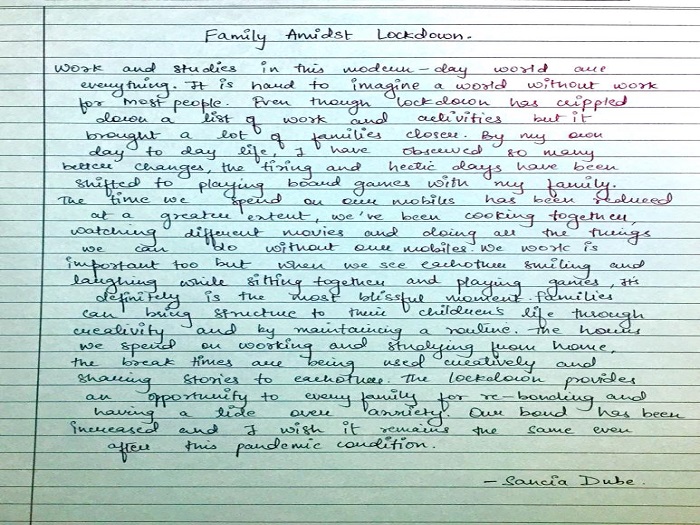 Family Amidst Lockdown.
Work and studies in this modern-day world are
everything. It is hard to imagine a world without work
for most people. Even though lockdown has crippled
down a list of work and activities but it
brought a lot of families closer. By my own
day to day life, I have observed so many
better changes, the tiring and hectic days have been
shifted to playing board games with my family.
The time we spend on our mobiles has been reduced
at a greater extent, we've been cooking together,
watching different movies and doing all the things
we can do without our mobiles. We work is
important too but when we see eachother smiling and
laughing while sitting together and playing games, its
definitely is the most blissful moment. Families
can bring structure to their children's life through
creativity and by maintaining a routine. The hours
we spend on working and studying from home,
the break times are being used creatively and
sharing stories to eachother. The lockdown provides
an opportunity to every family for re-bonding and
having a tide over anxiety. Our bond has been
increased and I wish it remains the same even
after this pandemic condition.
- Sancia Dube.